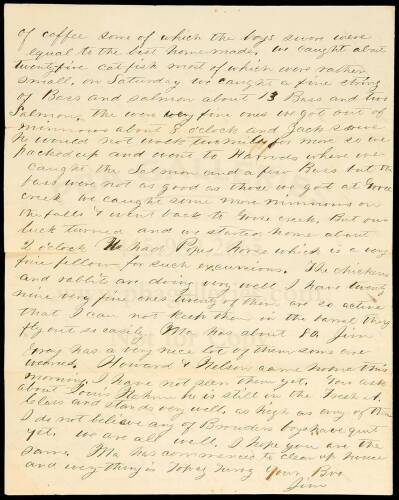 of coffee some of which the boys swore were
equal to the best homemade. we caught about
twentyfive catfish most of which were rather
small. on Saturday we caught a fine string
of Bass and salmon about 13 Bass and two
Salmon, the were very fine ones we got out of
minnows about 8 oclock and Jack swore
he would not walk two miles for more so we
packed up and went to Harrods where we
caught the Salmon and a few Bass but the
bass were not as good as those we got at Goose
creek we caught some more minnows on
the falls & went back to Goose creek. But our
luck turned and we started home about
2 oclock We had Popes horse which is a very
fine fellow for such excursions. The chickens
and rabbit are doing very well I have twenty
nine very fine ones twenty of them are so active
that I can not keep them in the barrel they
fly out so easily Ma has about 80. Jim
Gray has a very nice lot of them some one
wormed. Howard & Nelson came home this
morning I have not seen them yet. You ask
about Louis Hahn he is still in the Fresh.
Class and stands very well, as high as any of them
I do not believe any of Browders boys have quit
yet. we are all well. I hope you are the
same. Ma has commenced to clean up house
and everything is Topsy turvy your Bro
Jim